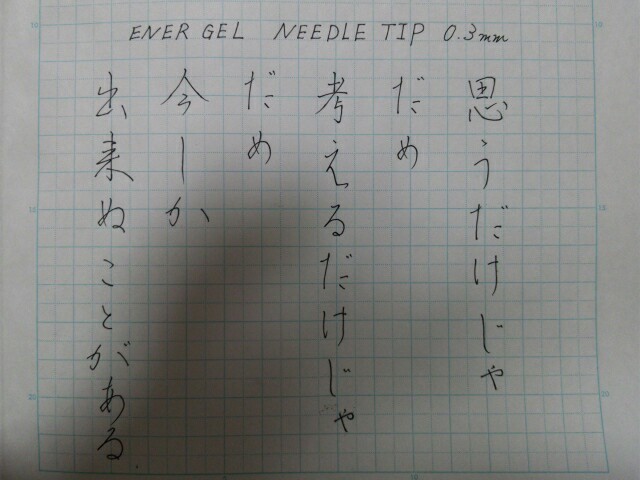 ENER GEL NEEDLE TIP 0.3mm
思うだけじゃ
だめ
考えるだけじゃ
だめ
今しか
出来ぬことがある